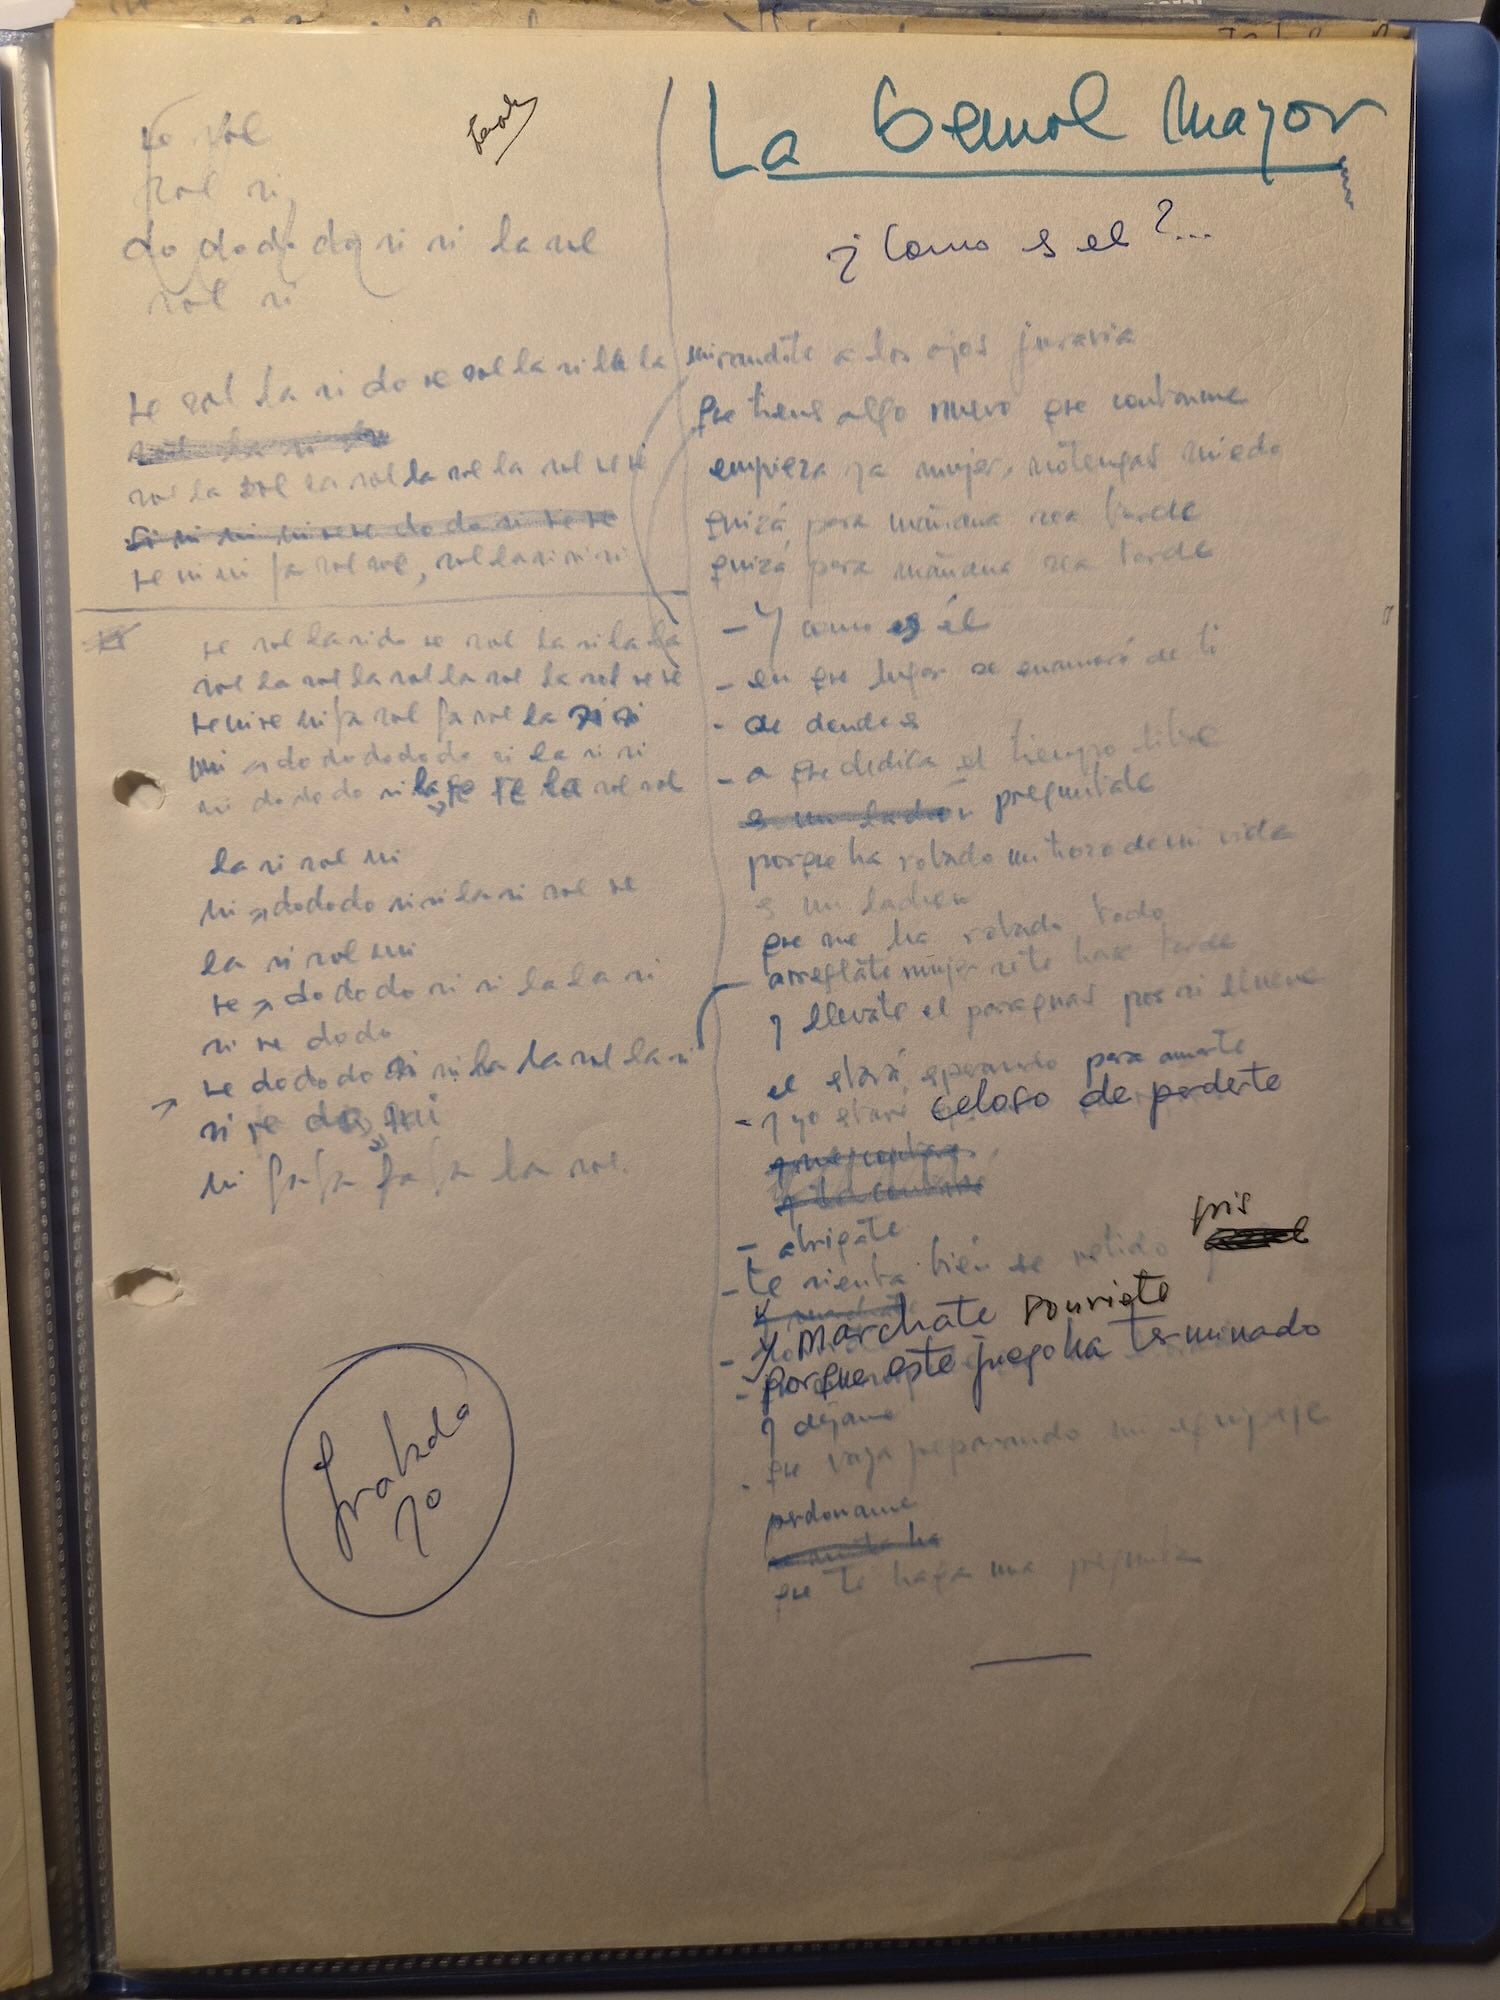 La bemol mayor
¿Como es el?...
re sol
sol si
do do do do si si la sol
sol si
re sol la si do re sol la si la la
sol la si do
sol la sol la sol la sol la sol re re
re mi mi fa sol sol, sol la si si si
re sol la si do re sol la si la la
sol la sol la sol la sol la sol re re
re mi re mi fa sol fa sol la si si
mi do do do do do si la si si
mi do do do si la re re la sol sol
la si sol mi
mi do do do si si la si sol re
la si sol mi
re do do do si si la la si
si re do do
re do do do si si la la sol la si
si re do mi
mi fa fa fa fa la sol
Grabada
70
mirandote a los ojos juraria
que tienes algo nuevo que contarme
empieza ya mujer, no tengas miedo
quizá para mañana sea tarde
quizá para mañana sea tarde
- Y como es él
- en que lugar se enamoró de ti
- de donde es
- a que dedica el tiempo libre
es un ladrón preguntale
porque ha robado un trozo de mi vida
es un ladron
que me ha robado todo
arreglate mujer se te hace tarde
y llevate el paraguas por si llueve
el estará esperando para amarte
- y yo estaré celoso de perderte
- abrigate
- te sienta bien ese vestido gris
y marchate sonriete
- porque este juego ha terminado
y dejame
- que vaya preparando mi equipaje
perdoname
que te haga una pregunta